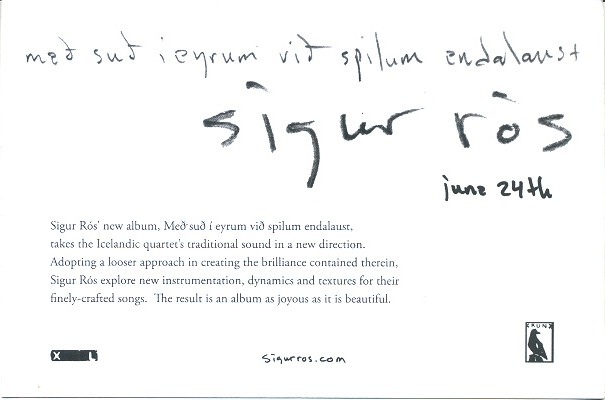 með suð i eyrum við spilum endalaust
sigur rós
june 24th
Sigur Rós' new album, Með suð í eyrum við spilum endalaust,
takes the Icelandic quartet's traditional sound in a new direction.
Adopting a looser approach in creating the brilliance contained therein,
Sigur Rós explore new instrumentation, dynamics and textures for their
finely-crafted songs. The result is an album as joyous as it is beautiful.
X L
sigurros.com
KRUNK